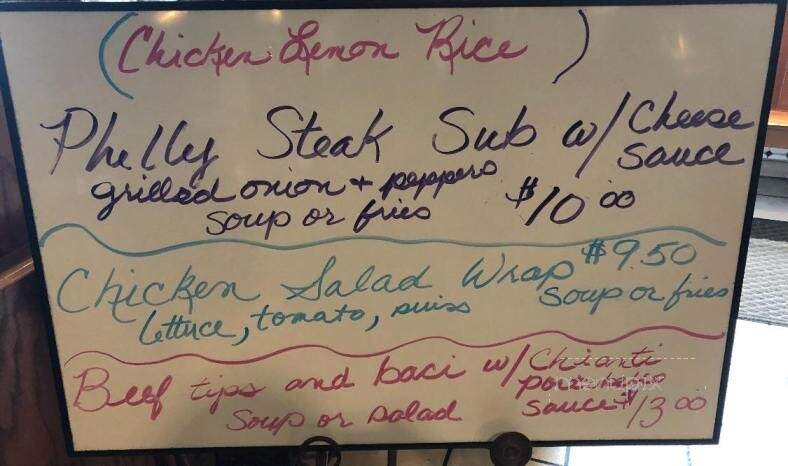 (Chicken Lemon Rice)
Philly Steak Sub w/ Cheese sauce
grilled onion + peppers
soup or fries $10.00
Chicken Salad Wrap $9.50
lettuce, tomato, swiss soup or fries
Beef tips and baci w/ Chianti
sauce $13.00
Soup or salad